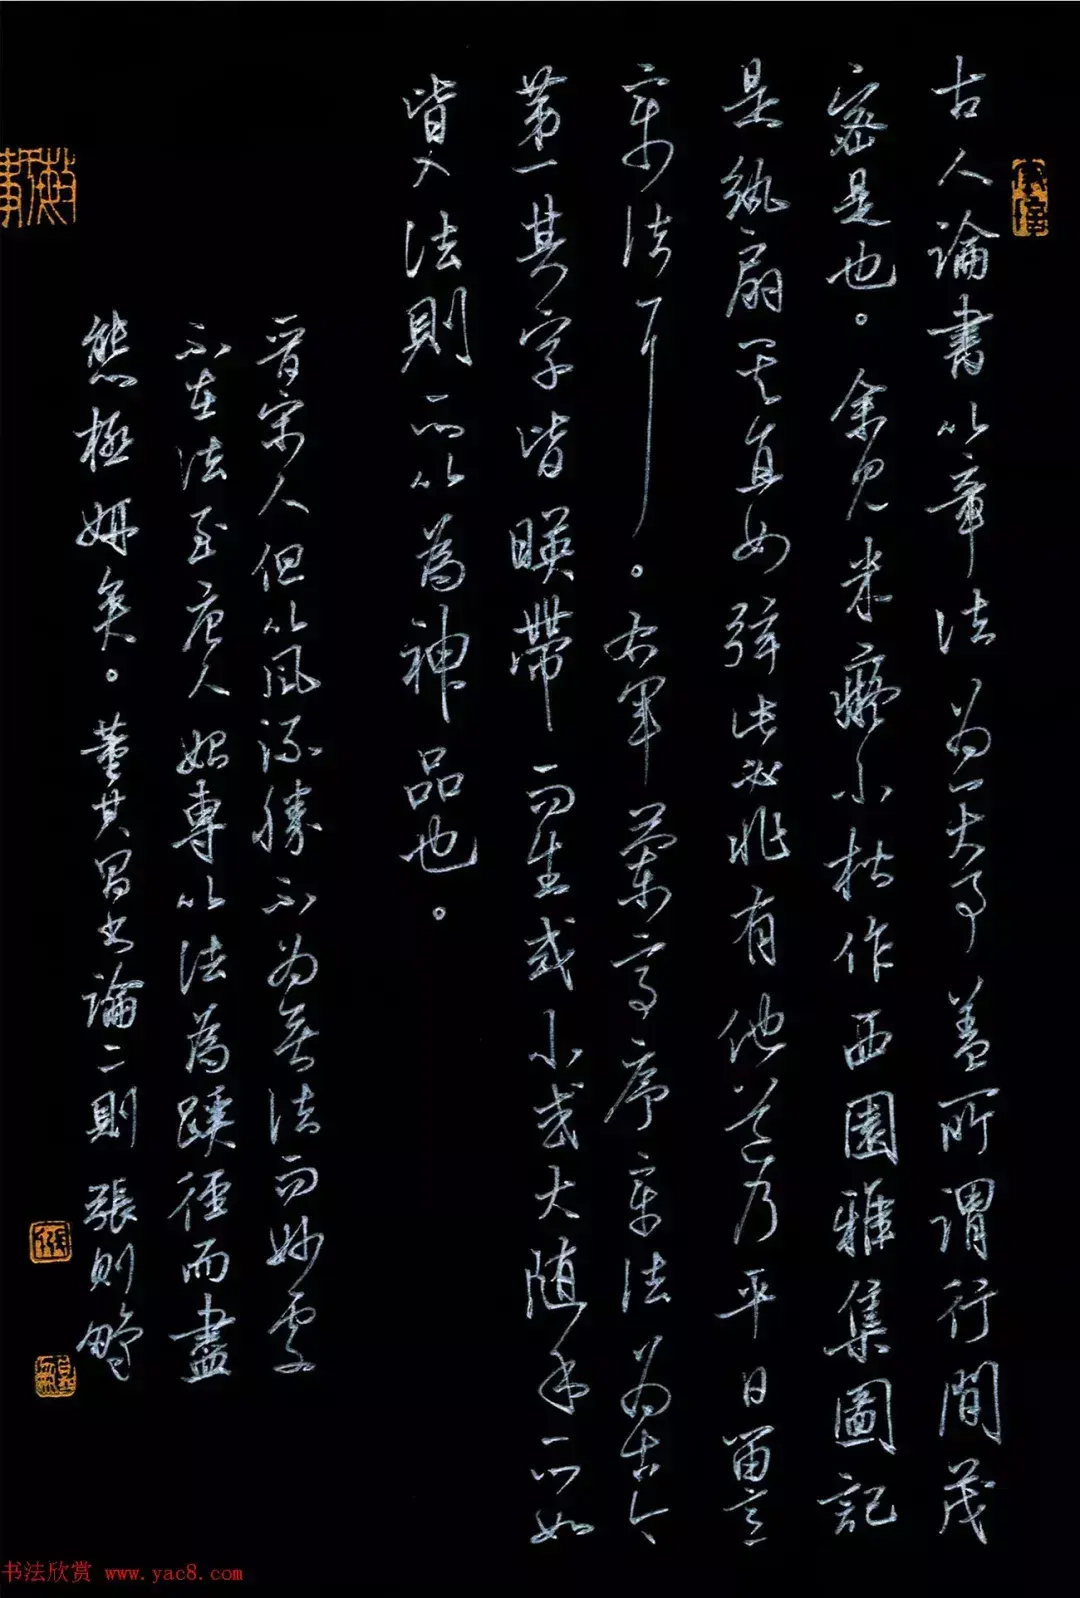 古人論書以章法为一大事盖所謂行間茂
密是也。余見米癡小楷作西園雅集圖記
是紈扇其直如弦此必非有他道乃平日留意
章法耳。右军蘭亭序章法为古今
第一其字皆暎帶而生或小或大随手所如
皆入法則所以為神品也。
晋宋人但以風流勝不为无法而妙處
不在法至唐人始專以法為蹊徑而盡
態極妍矣。董其昌书論二則 張則
书法欣赏 www.yac8.com